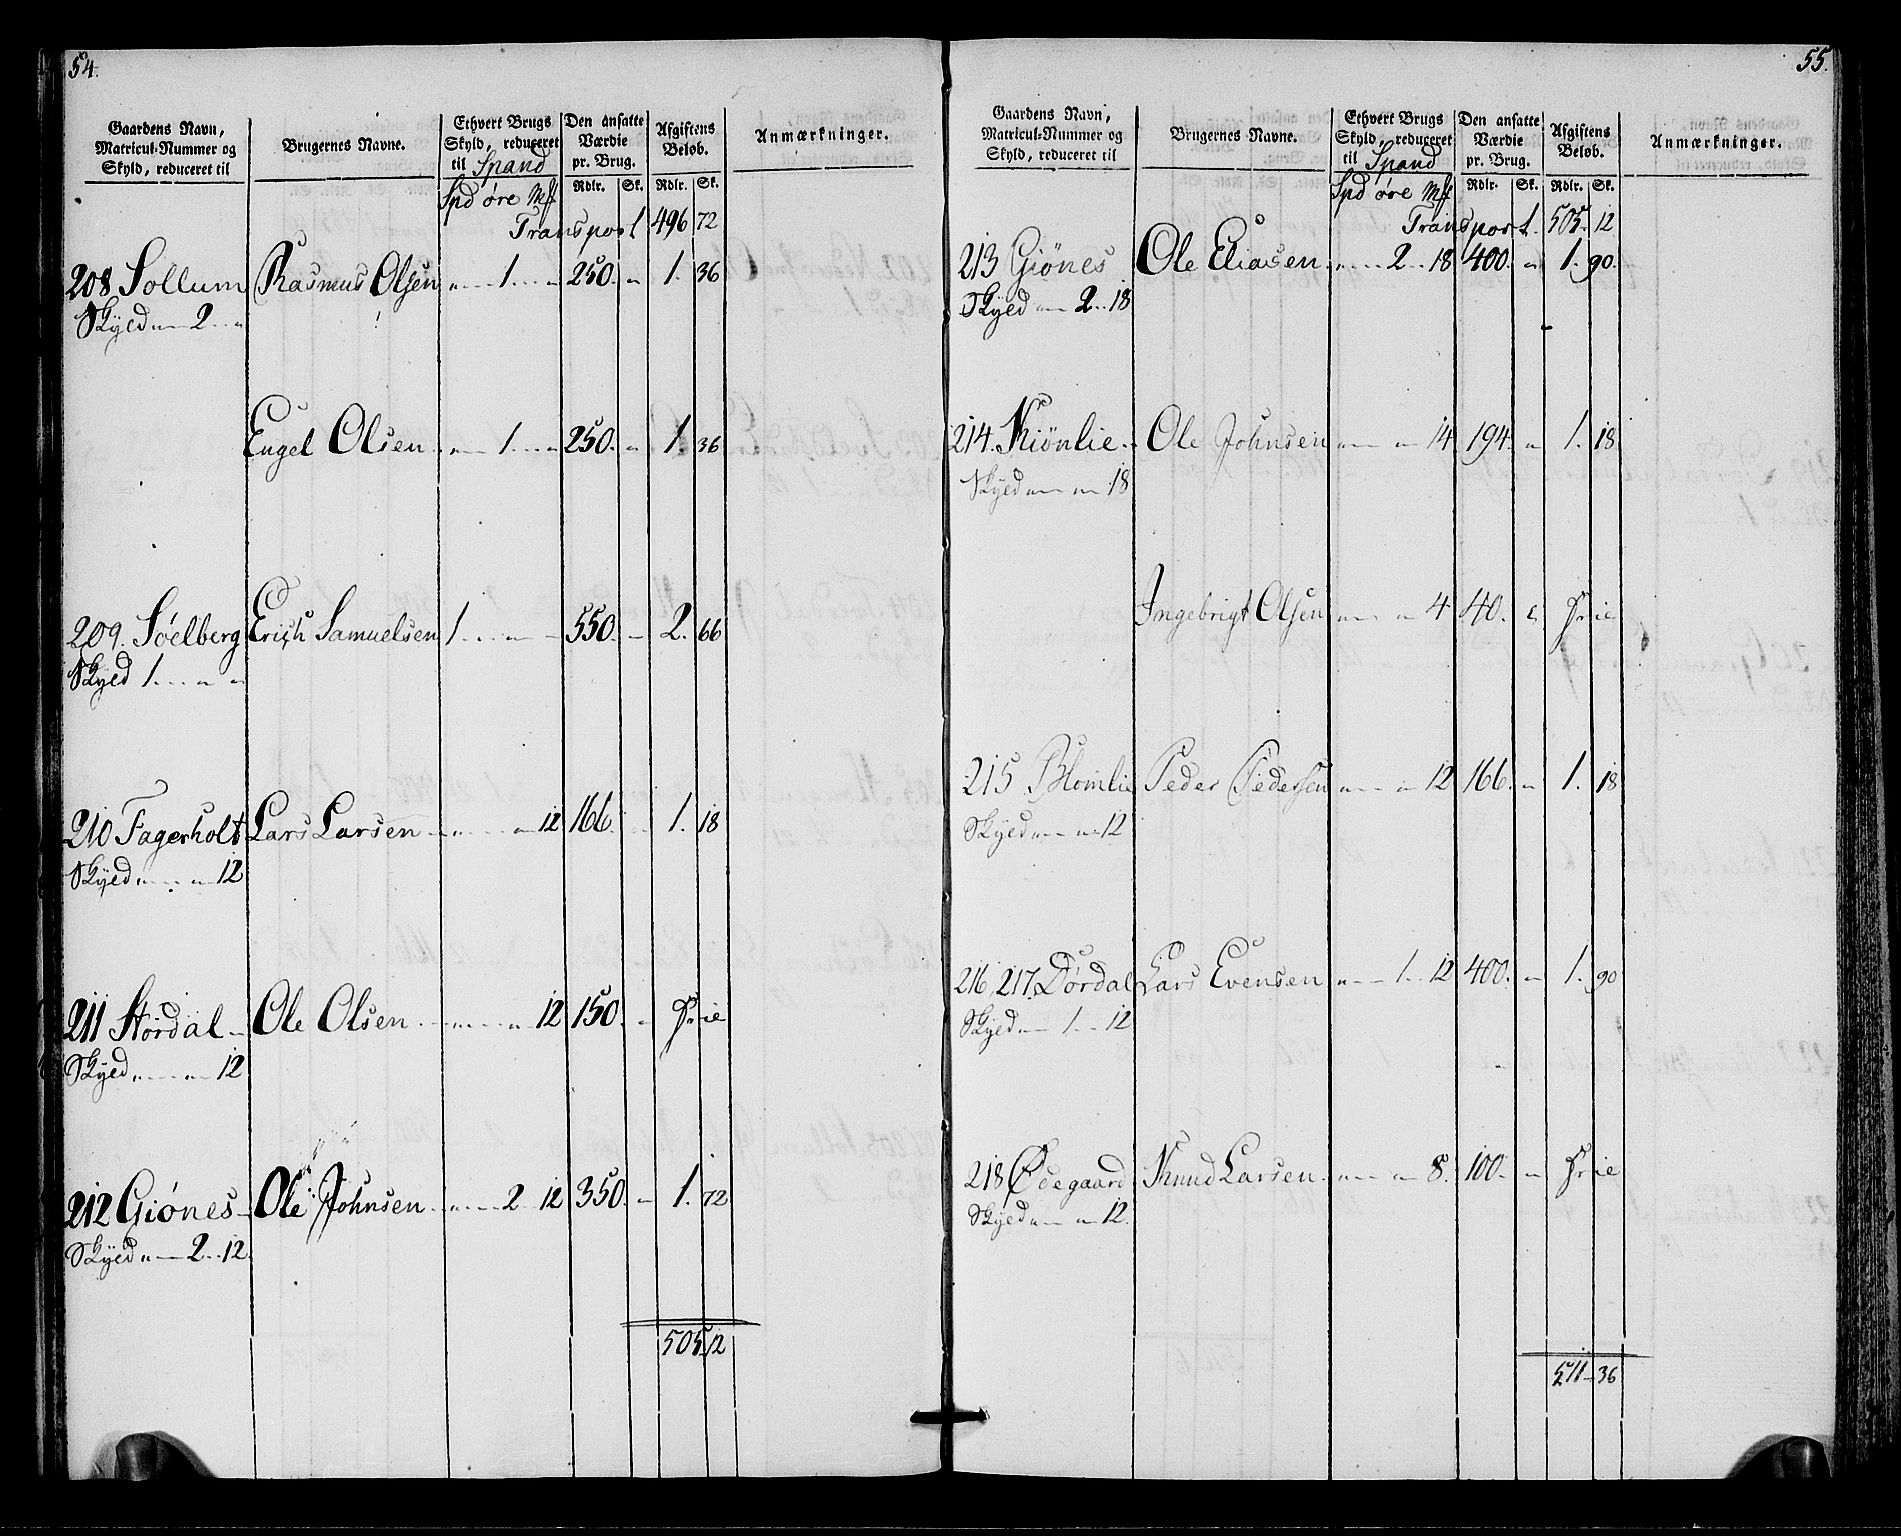 54.
Gaardens Navn, Matricul-Nummer og Skyld, reduceret til
Brugernes Navne.
Ethvert Brugs Skyld, reduceret til Spand
Den ansatte Værdie pr. Brug.
Afgiftens Beløb.
Anmærkninger.
Spd øre Mk
Rdlr. Sk. Rdlr. Sk.
Transport 496 72
208 Sollum Rasmus Olsen „ 1 „ 250. „ 1. 36
Skyld „ 2 „
Engel Olsen „ 1 „ 250. „ 1. 36
209. Søelberg Erich Samuelsen 1 „ „ 550. „ 2. 66
Skyld 1 „ „
210 Fagerholt Lars Larsen „ „ 12 166. „ 1. 18
Skyld „ „ 12
211 Stordal Ole Olsen „ „ 12 150. „ Frie
Skyld „ „ 12
212 Giønes Ole Johnsen „ 2 12 350. „ 1. 72
Skyld „ 2 12
505 12
55.
Gaardens Navn, Matricul-Nummer og Skyld, reduceret til
Brugernes Navne.
Ethvert Brugs Skyld, reduceret til Spand
Den ansatte Værdie pr. Brug.
Afgiftens Beløb.
Anmærkninger.
Spd øre Mk
Rdlr. Sk. Rdlr. Sk.
Transport. 505. 12
213 Giønes Ole Eliasen „ 2 18 400. „ 1. 90.
Skyld „ 2 18
214. Kiønlie Ole Johnsen „ „ 14 194. „ 1. 18
Skyld „ „ 18
Ingebrigt Olsen „ „ 4 40. „ Frie
215 Blomlie Peder Pedersen „ „ 12 166. „ 1. 18
Skyld „ „ 12
216, 217. Dørdal Lars Evensen „ 1 12 400. „ 1. 90
Skyld „ 1 12
218 Ødegaard Knud Larsen „ „ 8. 100. „ Frie
Skyld „ „ 12.
511 36